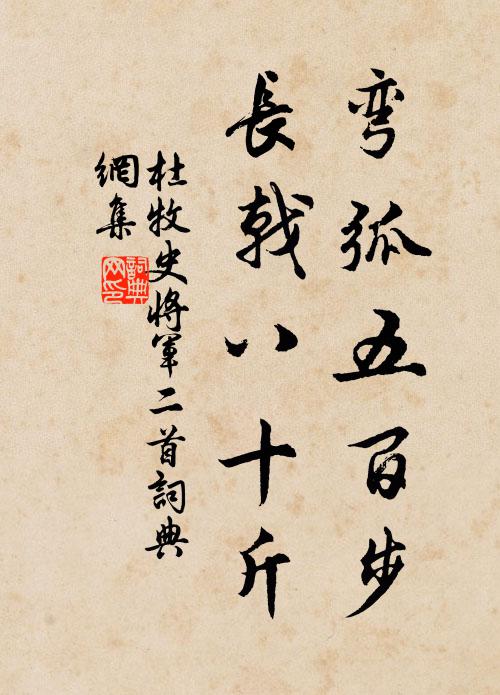 弯弧五百步
長戟八十斤
杜牧史将軍二首詞典
網集
詞典
网印